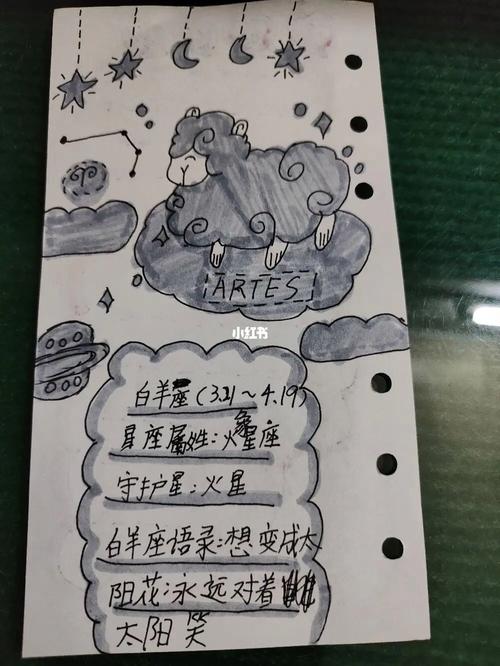 ARTES
小红书
白羊座(3.21~4.19)
星座属性:火象星座
守护星:火星
白羊座语录:想变成太
阳花:永远对着
太阳笑